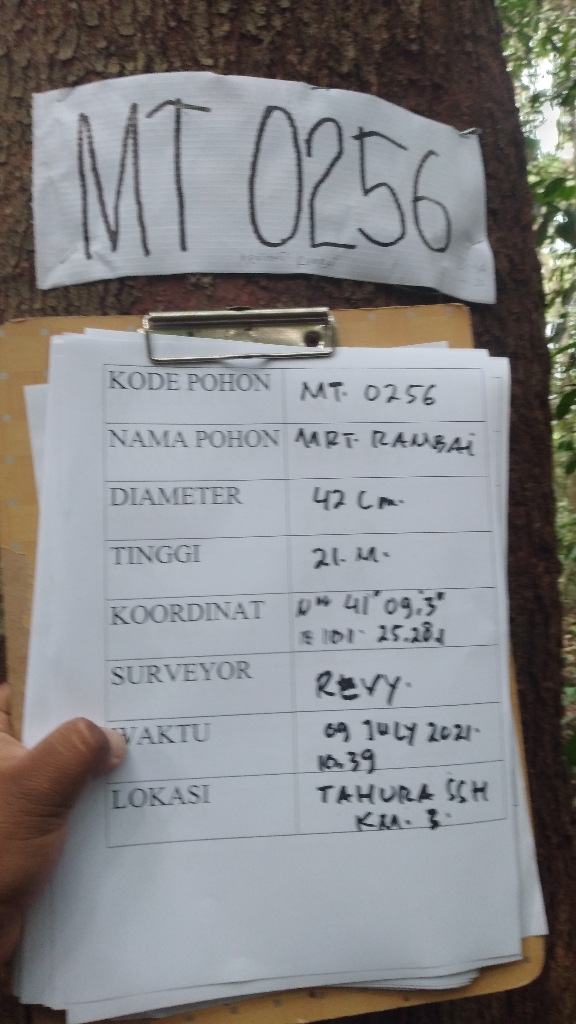 MT 0256
KODE POHON MT. 0256
NAMA POHON MRT. RAMBAi
DIAMETER 42 Cm.
TINGGI 21. M.
KOORDINAT 41" 09.3"
E 101. 25.28
SURVEYOR REVY.
WAKTU 09 JULY 2021.
10.39
LOKASI TAHURA SSH
KM. 3.